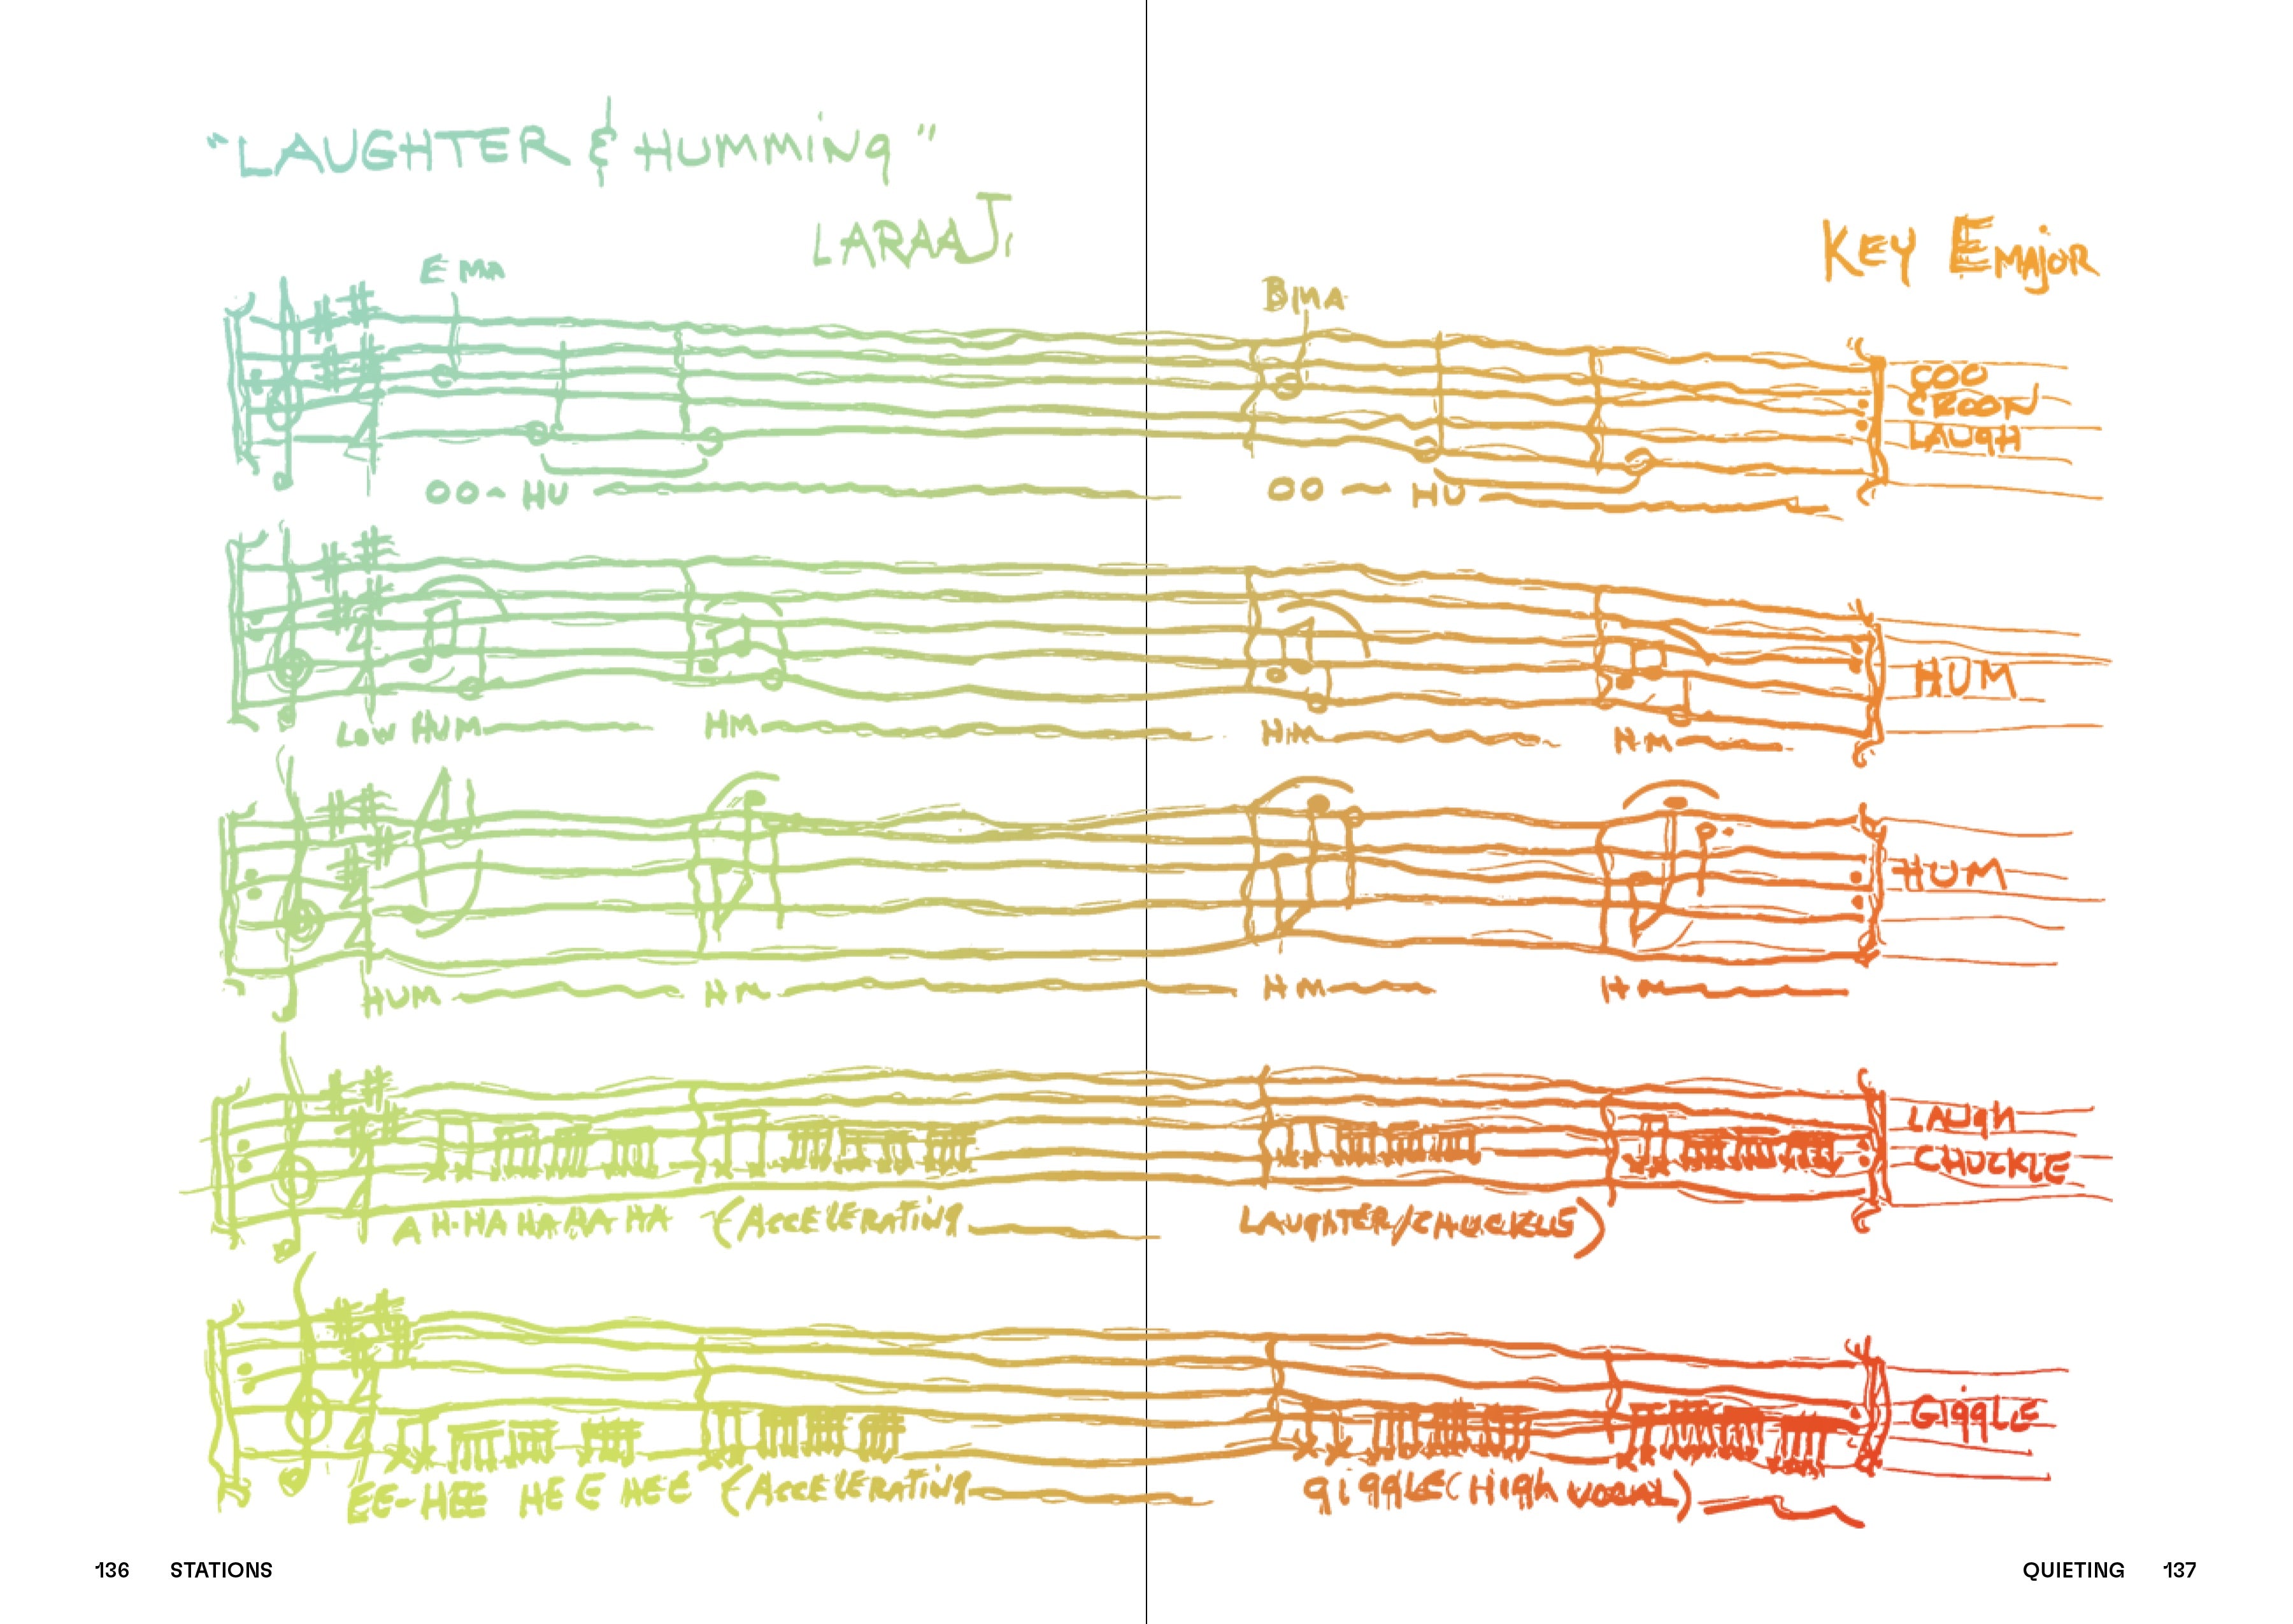 "LAUGHTER & HUMMINg"
LARAAJI
KEY EMAjOR
E MA
B MA
COO
CROON
LAUgH
OO - HU
OO - HU
HUM
LOW HUM
HM
HM
HM
HUM
HUM
HM
HM
HM
LAUgH
CHUCKLE
AH-HA HA HA HA (AccELERATiNg
LAUgHTER/CHUCKLES)
GiggLE
EE-HEE HEE HEE (AccELERATiNg
giggLE (HigH VOCAL)
136 STATIONS
QUIETING 137